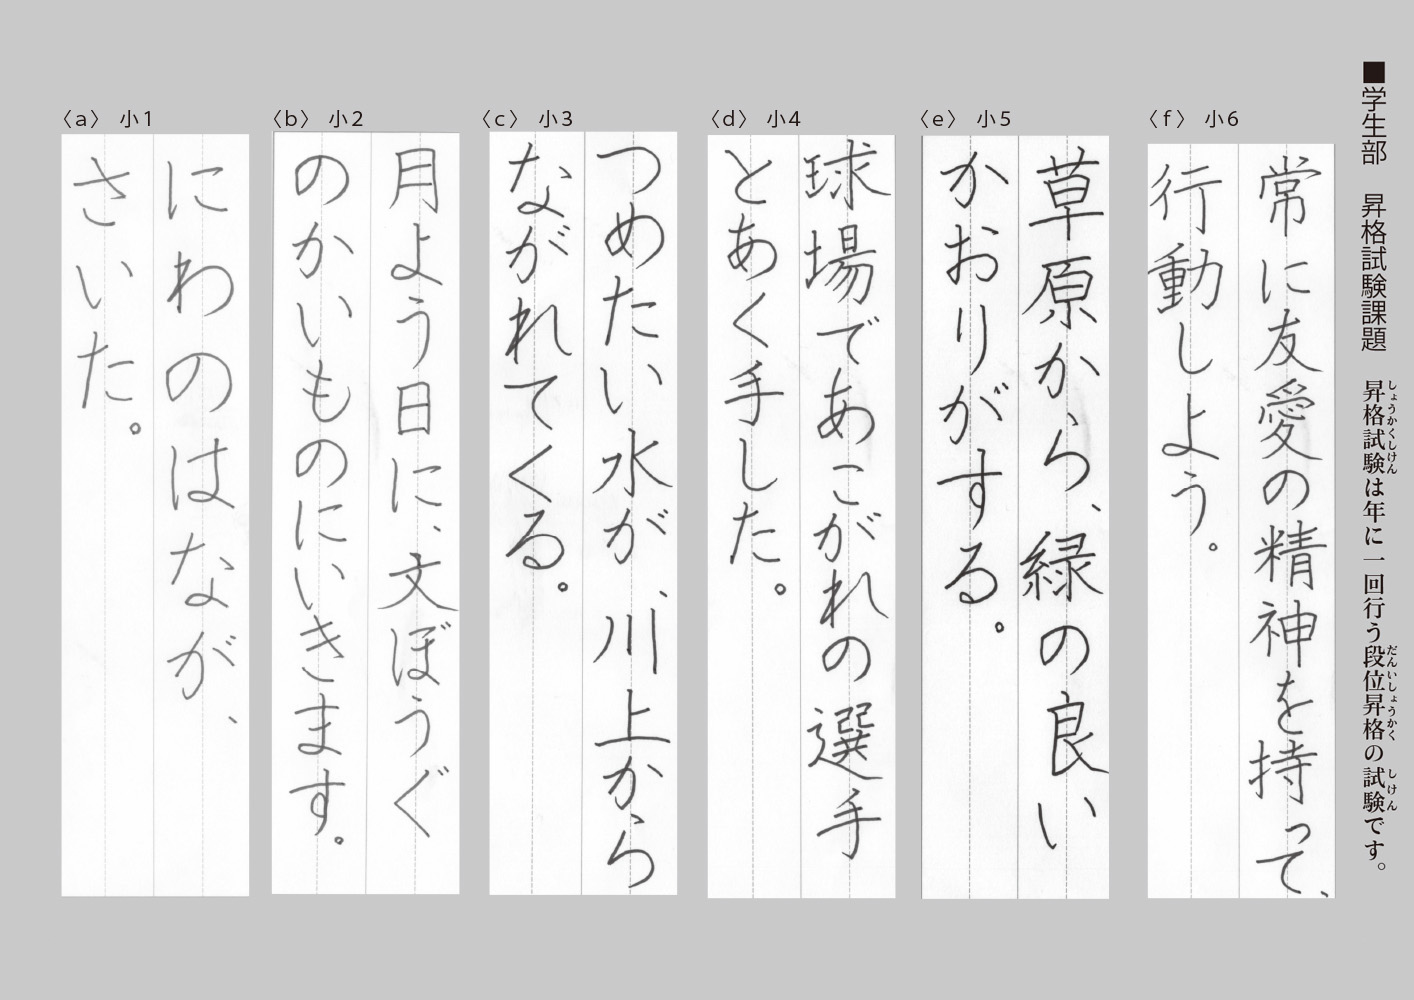 ■学生部　昇格試験課題　昇格試験は年に一回行う段位昇格の試験です。
しょうかくしけん
だんいしょうかく
しけん
〈f〉 小6
常に友愛の精神を持って、
行動しよう。
〈e〉 小5
草原から、緑の良い
かおりがする。
〈d〉 小4
球場であこがれの選手
とあく手した。
〈c〉 小3
つめたい水が、川上から
ながれてくる。
〈b〉 小2
月よう日に、文ぼうぐ
のかいものにいきます。
〈a〉 小1
にわのはなが、
さいた。